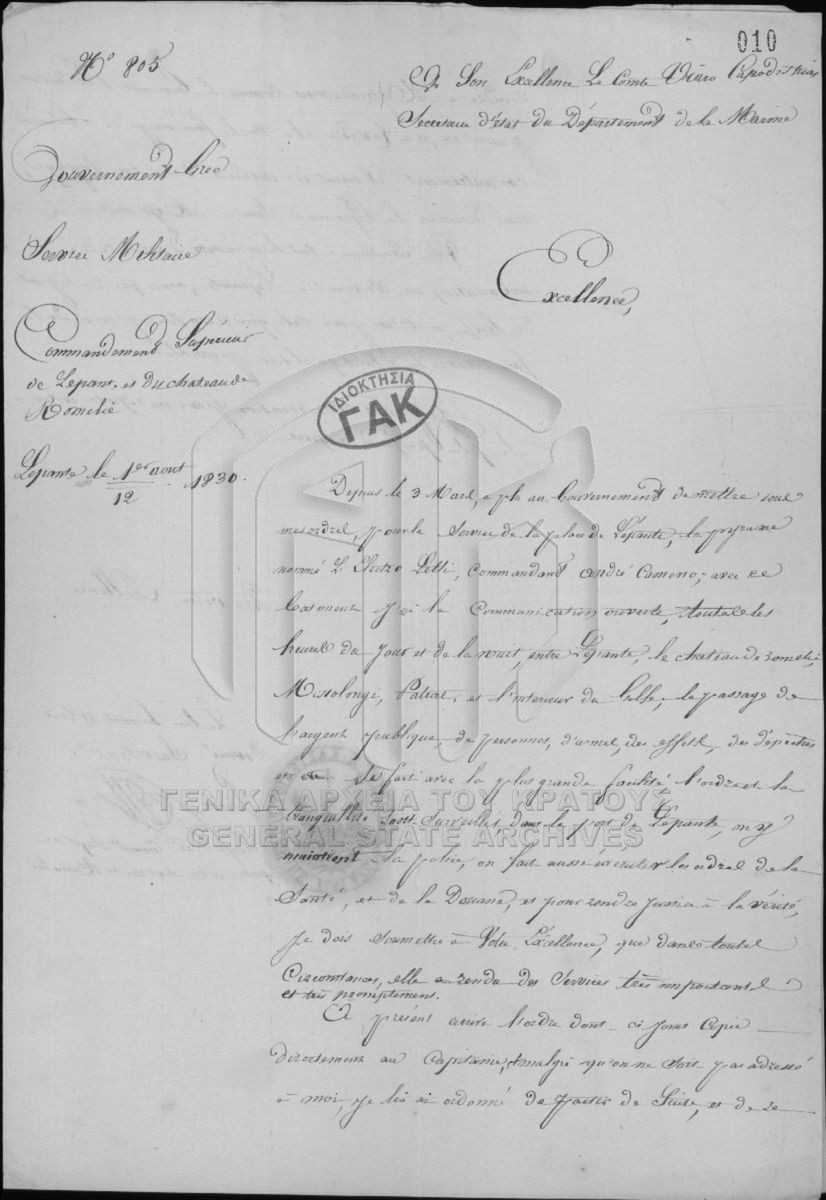 010
N° 805
A Son Excellence Le Comte Viaro Capodistrias
Secretaire d'état du Département de la Marine
Gouvernement Grec
Service Militaire
Excellence,
Commandement Supérieur
de Lepante et du chateau de
Romelie
ΙΔΙΟΚΤΗΣΙΑ
ΓΑΚ
Lepante le 1er/12 aout 1830.
Depuis le 3 Mars, a plu au Gouvernement de mettre sous
mes ordres, pour le Service de la place de Lépante, la
nommé L'Electro Commandant André avec ce
j'ai la Communication ouverte, toutes les
heures du Jour et de la nuit, entre Lépante, le chateau de Romelie,
Missolongi, Patras, et l'interieur du Golfe; le passage de
l'argent publique, de personnes, d'armes, des effets, des dépeches
etc se fait avec la plus grande facilité l'ordre et la
tranquillité sont surveillés, dans le port de Lepante, on y
maintient la police, on fait aussi executer les ordres de la
Santé, et de la Douane, et pour rendre justice à la vérité,
Je dois soumettre à Votre Excellence, que dans toutes
Circonstances, elle a rendu des Services très importants
et très promptement.
A présent arrive l'ordre dont ci joint Copie
directement au Capitaine, malgré qu'on ne soit pas adressé
à moi, je lui ai ordonné de partir de Suite, et de se
ΓΕΝΙΚΑ ΑΡΧΕΙΑ ΤΟΥ ΚΡΑΤΟΥΣ
GENERAL STATE ARCHIVES